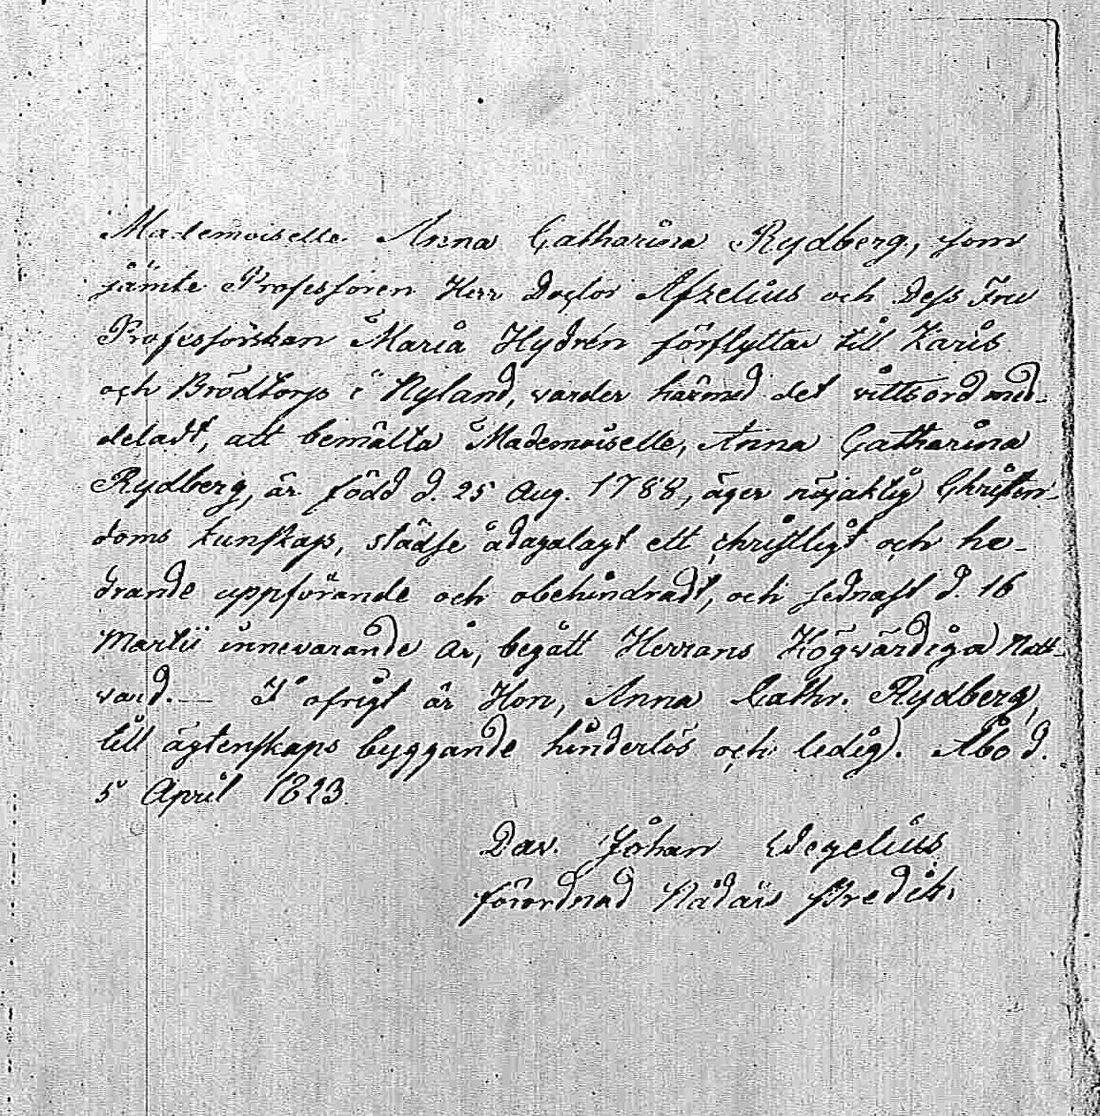 Mademoiselle Anna Catharina Rydberg, som
jämte Professoren Herr Doctor Afzelius och Dess Fru
Professorskan Maria Hydrén förflyttar till Karis
och Brödtorp i Nyland, varder härmed det vittsord med-
deladt, att bemälta Mademoiselle, Anna Catharina
Rydberg, är född d. 25 Aug. 1788, äger nöjaktig Christen-
doms kunskap, städse ådagalagt ett christligt och he-
drande uppförande och obehindradt, och sednast d. 16
Martii innevarande år, begått Herrans Högvärdiga Natt-
vard. — I öfrigt är Hon, Anna Cathr. Rydberg,
till ägtenskaps byggande hinderlös och ledig. Åbo d.
5 April 1823.
Dav. Johan Degelius
förordnad Nådaårs Predik.